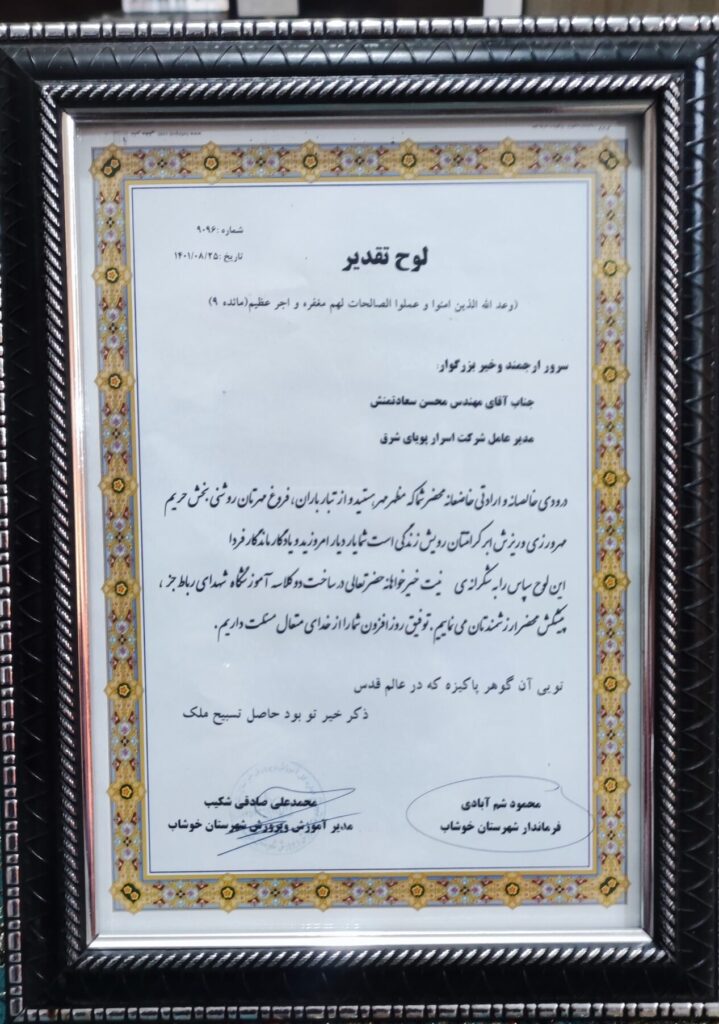 شماره :۹۰۹۶
تاریخ :۱۴۰۱/۰۸/۲۵
لوح تقدیر
(وعد الله الذین امنوا و عملوا الصالحات لهم مغفره و اجر عظیم(مائده ۹)
سرور ارجمند وخیر بزرگوار:
جناب آقای مهندس محسن سعادتمنش
مدیر عامل شرکت اسرار پویای شرق
درودی خالصانه و ارادتی خاضعانه محضر شما که مظهر مهر هستید و از تبار باران، فروغ مهرتان روشنی بخش حریم
مهرورزی و ریزش ابر کرامتتان رویش زندگی است شما یار دیار امروزید و یادگار ماندگار فردا
این لوح سپاس را به شکرانه ی نیت خیرخواهانه حضرتعالی در ساخت دو کلاسه آموزشگاه شهدای رباط جز ،
پیشکش محضر ارزشمندتان می نماییم. توفیق روز افزون شما را از خدای متعال مسئلت داریم.
تویی آن گوهر پاکیزه که در عالم قدس
ذکر خیر تو بود حاصل تسبیح ملک
محمود شم آبادی
فرماندار شهرستان خوشاب
محمدعلی صادقی شکیب
مدیر آموزش وپرورش شهرستان خوشاب